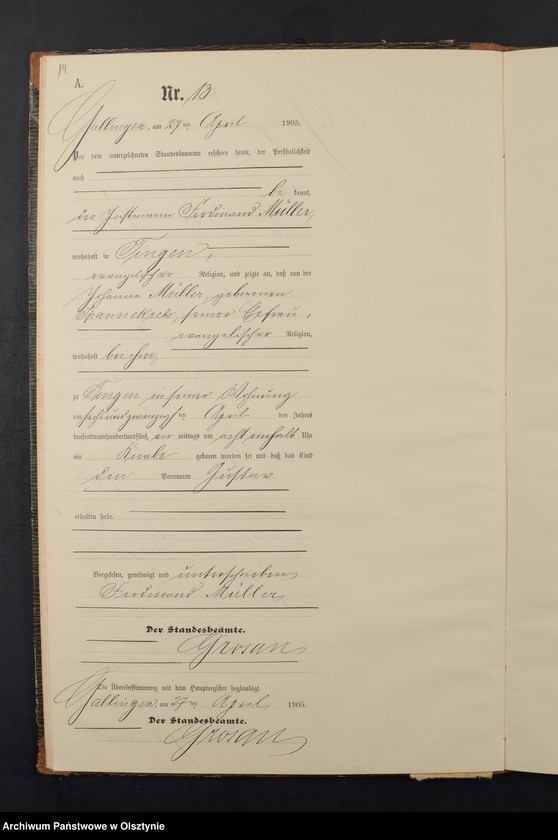 14
A.
Nr. 13
Gallingen, am 27 ten April 1905.
Vor dem unterzeichneten Standesbeamten erschien heute, der Persönlichkeit
nach
be kannt,
der Instmann Ferdinand Müller,
wohnhaft in Tingen,
evangelischer Religion, und zeigte an, daß von der
Johanna Müller, geborenen
seiner Ehefrau,
evangelischer Religion,
wohnhaft bei ihm,
zu Tingen in seiner Wohnung
am sechsundzwanzigsten April des Jahres
tausendneunhundertundfünf, vor mittags um acht einhalb Uhr
ein Knabe geboren worden sei und daß das Kind
den Vornamen Gustav
erhalten habe.
Vorgelesen, genehmigt und unterschrieben
Ferdinand Müller
Der Standesbeamte.
Grosan
Die Übereinstimmung mit dem Hauptregister beglaubigt
Gallingen, am 27 ten April 1905.
Der Standesbeamte.
Grosan
Archiwum Państwowe w Olsztynie